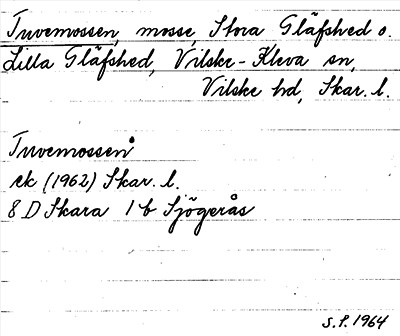 Tuvemossen, mosse, Stora Gläfshed o.
Lilla Gläfshed, Vilske-Kleva sn,
Vilske hd, Skar. l.
Tuvemossen
ek (1962) Skar. l.
8 D Skara 1 b Sjögerås
S.P. 1964